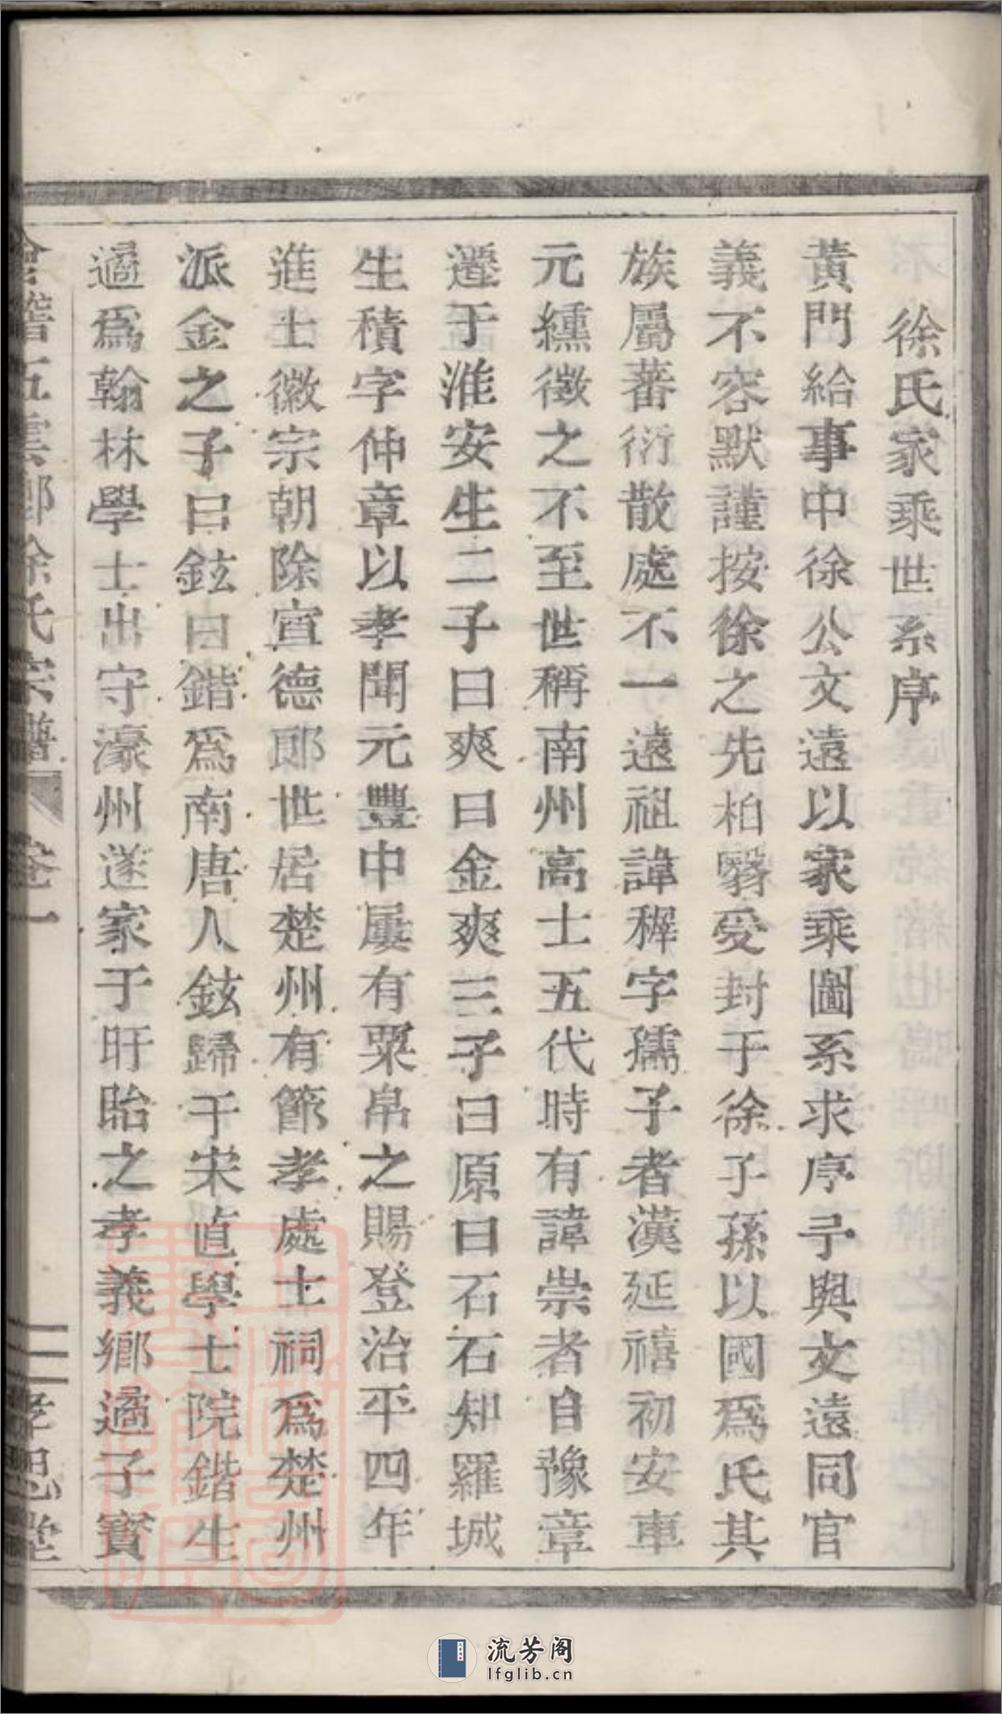 徐氏家乘世系序
黃門給事中徐公文遠以家乘圖系求序予與文遠同官
義不容默謹按徐之先柏翳受封于徐子孫以國爲氏其
族屬蕃衍散處不一遠祖諱穉字孺子者漢延禧初安車
元纁徵之不至世稱南州高士五代時有諱崇者自豫章
遷于淮安生二子曰爽曰金爽三子曰原曰石石知羅城
生積字仲章以孝聞元豐中屢有粟帛之賜登治平四年
進士徽宗朝除宣德郎世居楚州有節孝處士祠爲楚州
派金之子曰鉉曰鍇爲南唐人鉉歸于宋直學士院鍇生
遹爲翰林學士出守濠州遂家于盱眙之孝義鄉遹子寳
會稽五雲鄉徐氏宗譜 卷一
孝思堂
流芳阁
lfglib.cn